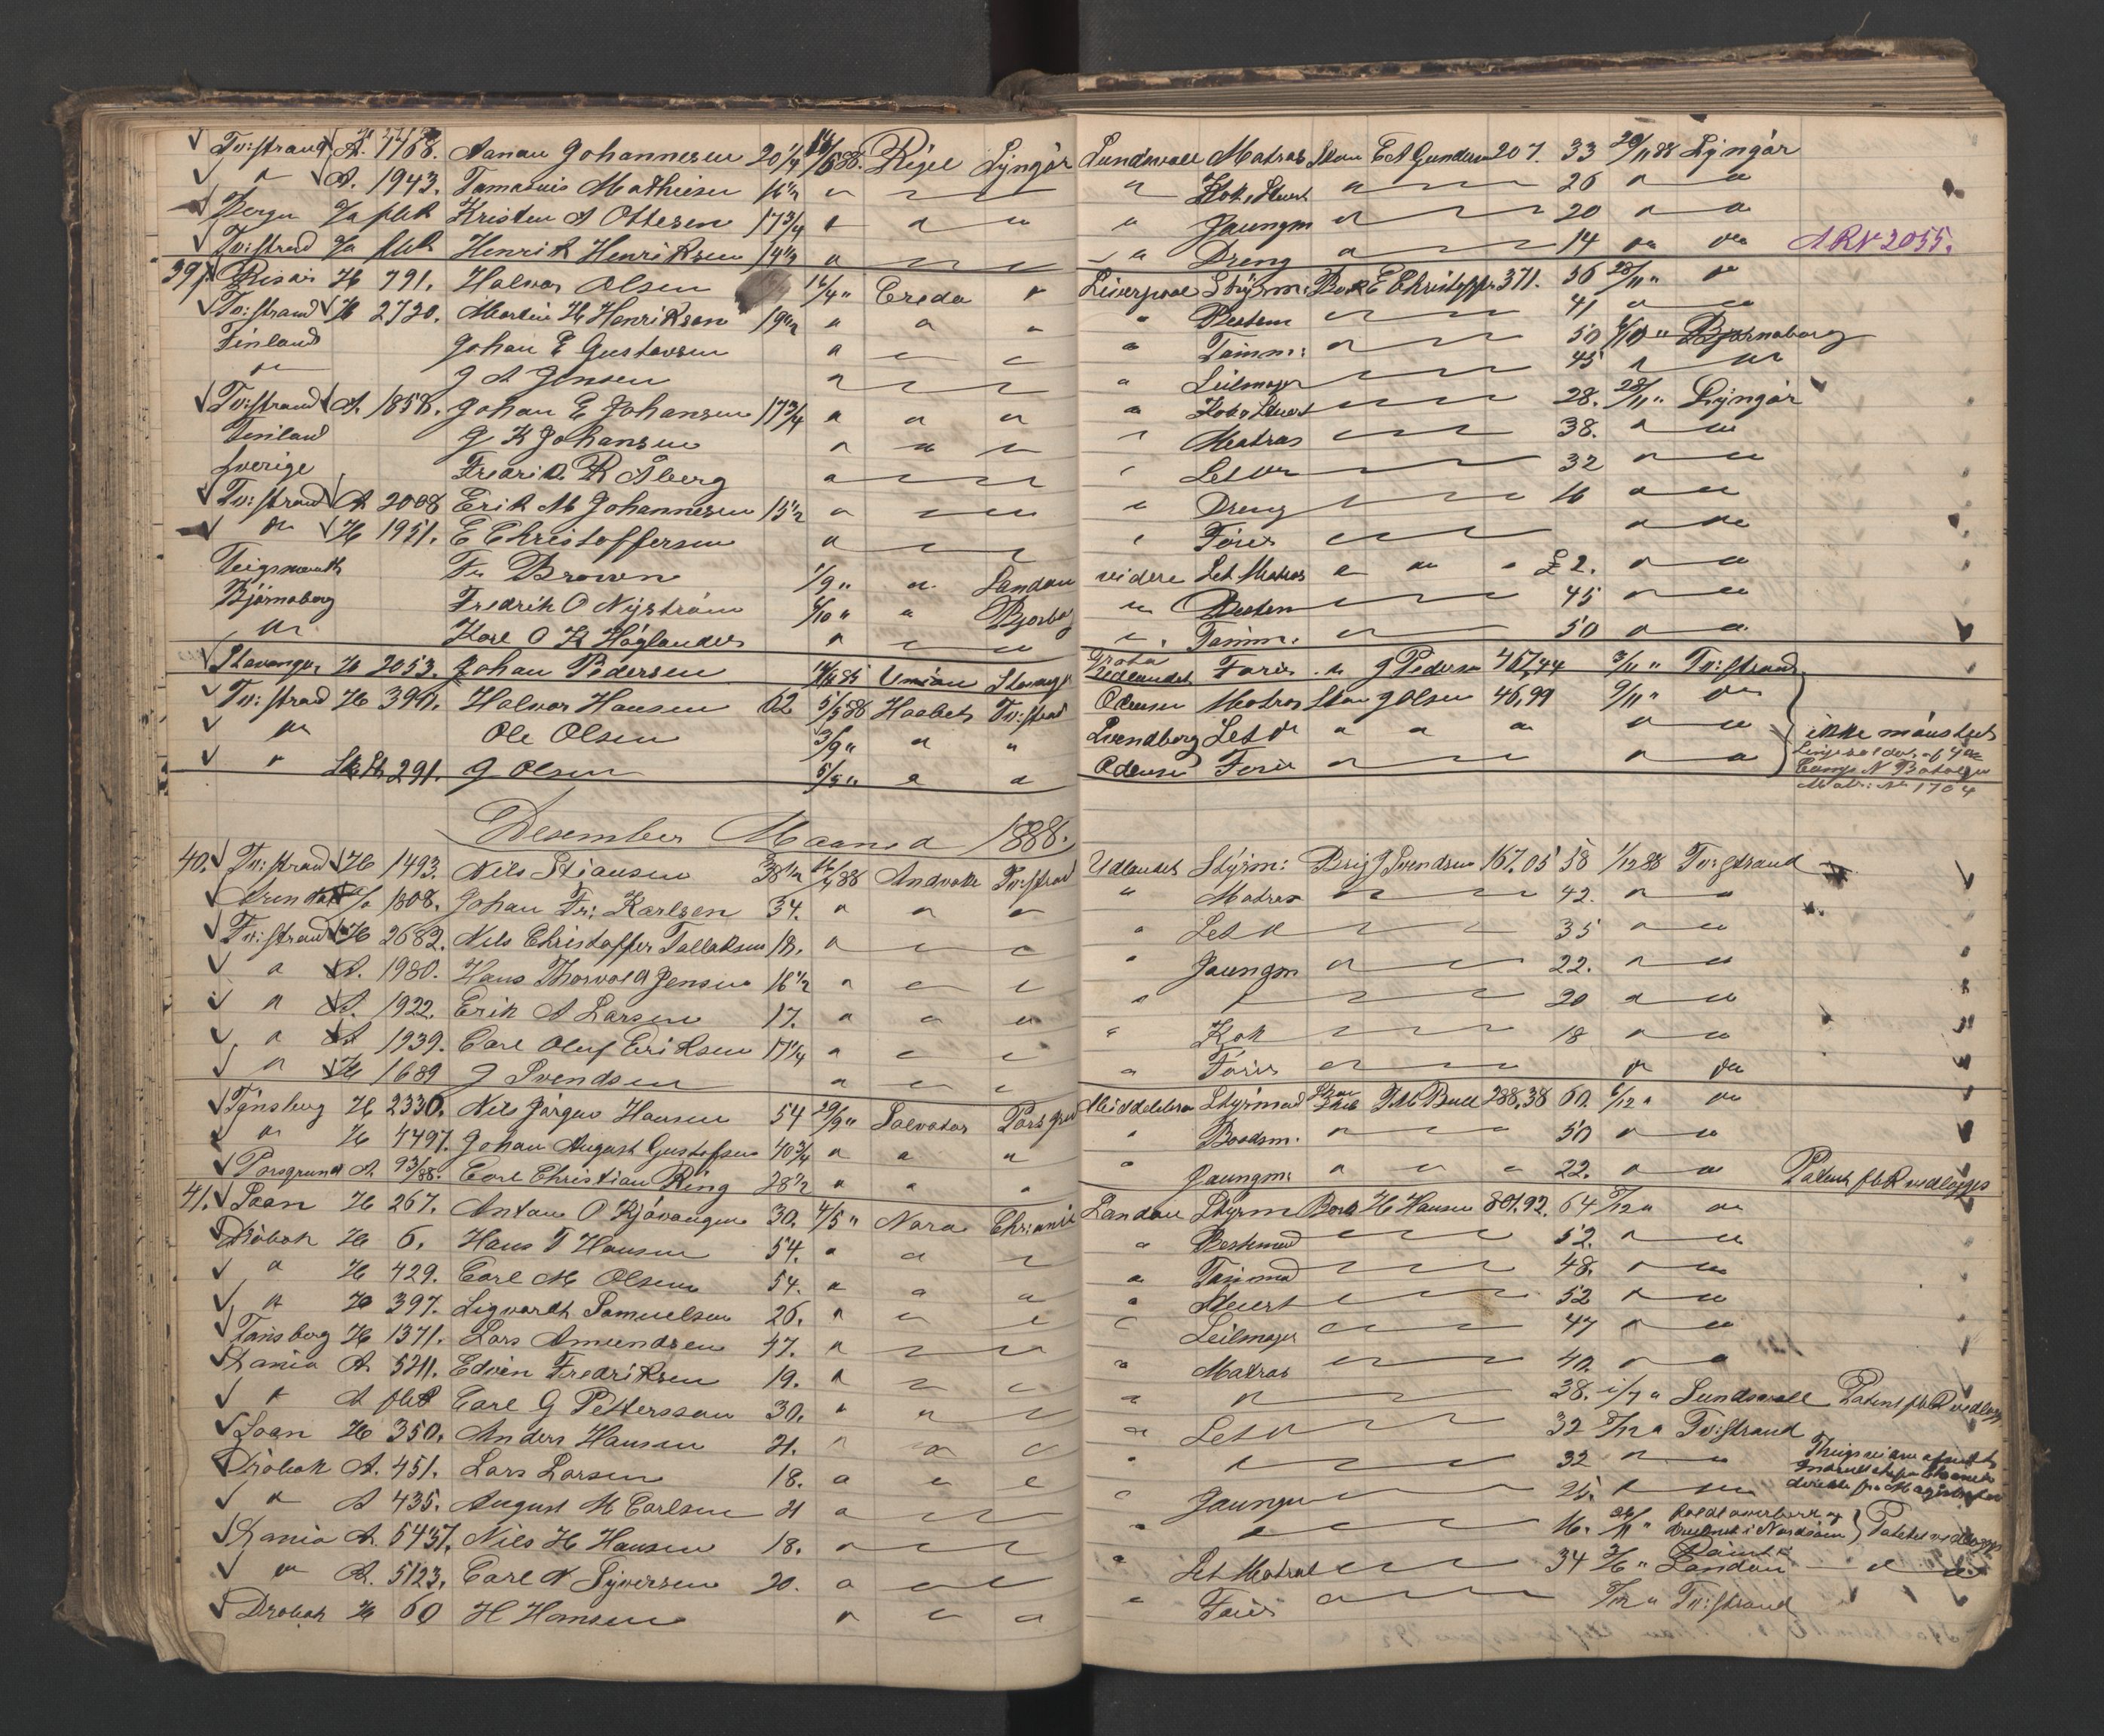 Tv:strand A. 1768. Aanan Johannesen 20 1/4 16/5 88. Rigel Lyngör Sundsvall Matros Skon E A Gundersen 207. 33 29/11 88 Lyngör
" A. 1943. Tomanius Mathiesen 16 1/2 " " " " Kok, Stuert " 26 " "
Bergen Ja pbk Kristen A Ottesen 17 3/4 " " " " Jaungm " 20 " "
Tv:strand Ja pbk Henrik Henriksen 14 1/2 " " " " Dreng " 14 " " A R N 2055.
39. Risör H 791. Halvor Olsen 16/4 " Creda " Liverpool Styrm: Bark E Christoffs 371. 56 28/11 " "
Tv:strand H 2720. Martin H Henrikson 19 1/2 " " " " Bestm " 41 " "
Finland Johan E Gustavsen " " " " Tömm: " 50 6/10 " Bjørneborg
" J A Jensen " " " " Seilmager " 45 " "
Tv:strand A. 1858. Johan E Johansen 17 3/4 " " " " Kok o Stuert " 28. 28/11 " Lyngör
Finland J K Johansen " " " " Matros " 38. " "
Sverige Fredrik R Åberg " " " " Let do " 32 " "
Tv:strand A 2008 Erik M Johannesen 15 1/2 " " " " Dreng " 16 " "
" H 1951. E Christoffersen " " " " Förer " " "
Teigsmouth Fr Brown 1/9 " " London videre Let Matros " " " £2. " "
Bjørneborg Fredrik O Nyström 6/10 " " Bjorbg " Bestm " 45 " "
" Karl O K Höglander " " " " Tømm. " 50 " "
Stavanger H 2053. Johan Pedersen 14/8 85 Union Stavanger Udlandet Förer " J Pedersen 467,44 3/11 " Tv:strand
Tv:strand H 3961. Halvor Hansen 62 5/5 86 Haabet Tv:strand Odense Matros Skon J Olsen 46,99 9/11 " "
" Ole Olsen 3/9 " " " Svendborg Let do " " " " " ikke mönstret
" 291. J Olsen 5/5 " " " Odense Förer " " "
Desember Maaned 1888.
40. Tv:strand H 1493. Nils Stiansen 38 1/2 16/4 88 Andvake Tv:strand Udlandet Styrm: Brig J Svendsen 167.05 58 1/12 88 Tvedestrand
Arendal 1808. Johan Fr: Karlsen 34. " " " " Matros " 42. " "
Tv:strand H 2682. Nils Christoffer Tallaksen 18. " " " " Let do " 35 " "
" A. 1980. Hans Thorvald Jensen 16 1/2 " " " " Jaungm " 22. " "
" A. 1922. Erik A Larsen 17. " " " " " " 20 " "
" A 1939. Carl Oluf Eriksen 17 1/4 " " " " Kok " 18 " "
" H 1689 J Svendsen " " " " Förer " " "
Tönsberg H 2330. Nils Jörgen Hansen 54 29/9 " Salvator Porsgrund Middelsbro Styrmand Skon Skib Bull 288,38 60. 6/12 " "
" H 4497. Johan August Gustafsen 40 3/4 " " " " Baadsm. " 50 " "
Porsgrund A. 93/88. Carl Christian Ring 28 1/2 " " " " Jaungm: " " " 22. " " Patent pbk vedlægges
41. Soon H 267. Anton O Kjövangen 30. 4/5 " Nora Chr:ania London Styrm Bark H Hansen 801.92. 64 5/12 " "
Dröbak H 6. Hans T Hansen 54. " " " " Bestmand " 52. " "
" H 429. Carl M Olsen 54. " " " " Tømmd " 48. " "
" H 397. Sigvardt Samuelsen 26. " " " " Stuert " 52 " "
Tönsberg H 1371. Lars Amundsen 47. " " " " Seilmager " 47 " "
Kania A 5211. Edvin Fredriksen 19. " " " " Matros " 40. " "
" A pbk Carl G Pettersson 30. " " " " " 38. 1/7 " Sundsvall Patent pbk vedlægg
Soon H 350. Anders Hansen 21. " " " " Let do " 32 5/12 " Tv:strand
Dröbak A. 451. Lars Larsen 18. " " " " " 32 " "
" A 435. August M Carlsen 21 " " " " Jaungm " 25. " "
Kania A. 5437. Nils H Hansen 18. " " " " " 16. 26/11 " i Nordsøen
" A. 5123. Carl A Syversen 20. " " " " Let Matros " 34 3/6 " London " "
Dröbak H 60 H Hansen " " " " Förer " 5/12 " Tv:strand